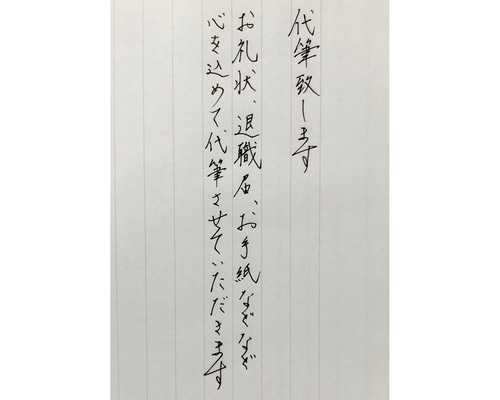 代筆致します
お礼状、退職届、お手紙などなど
心を込めて代筆させていただきます